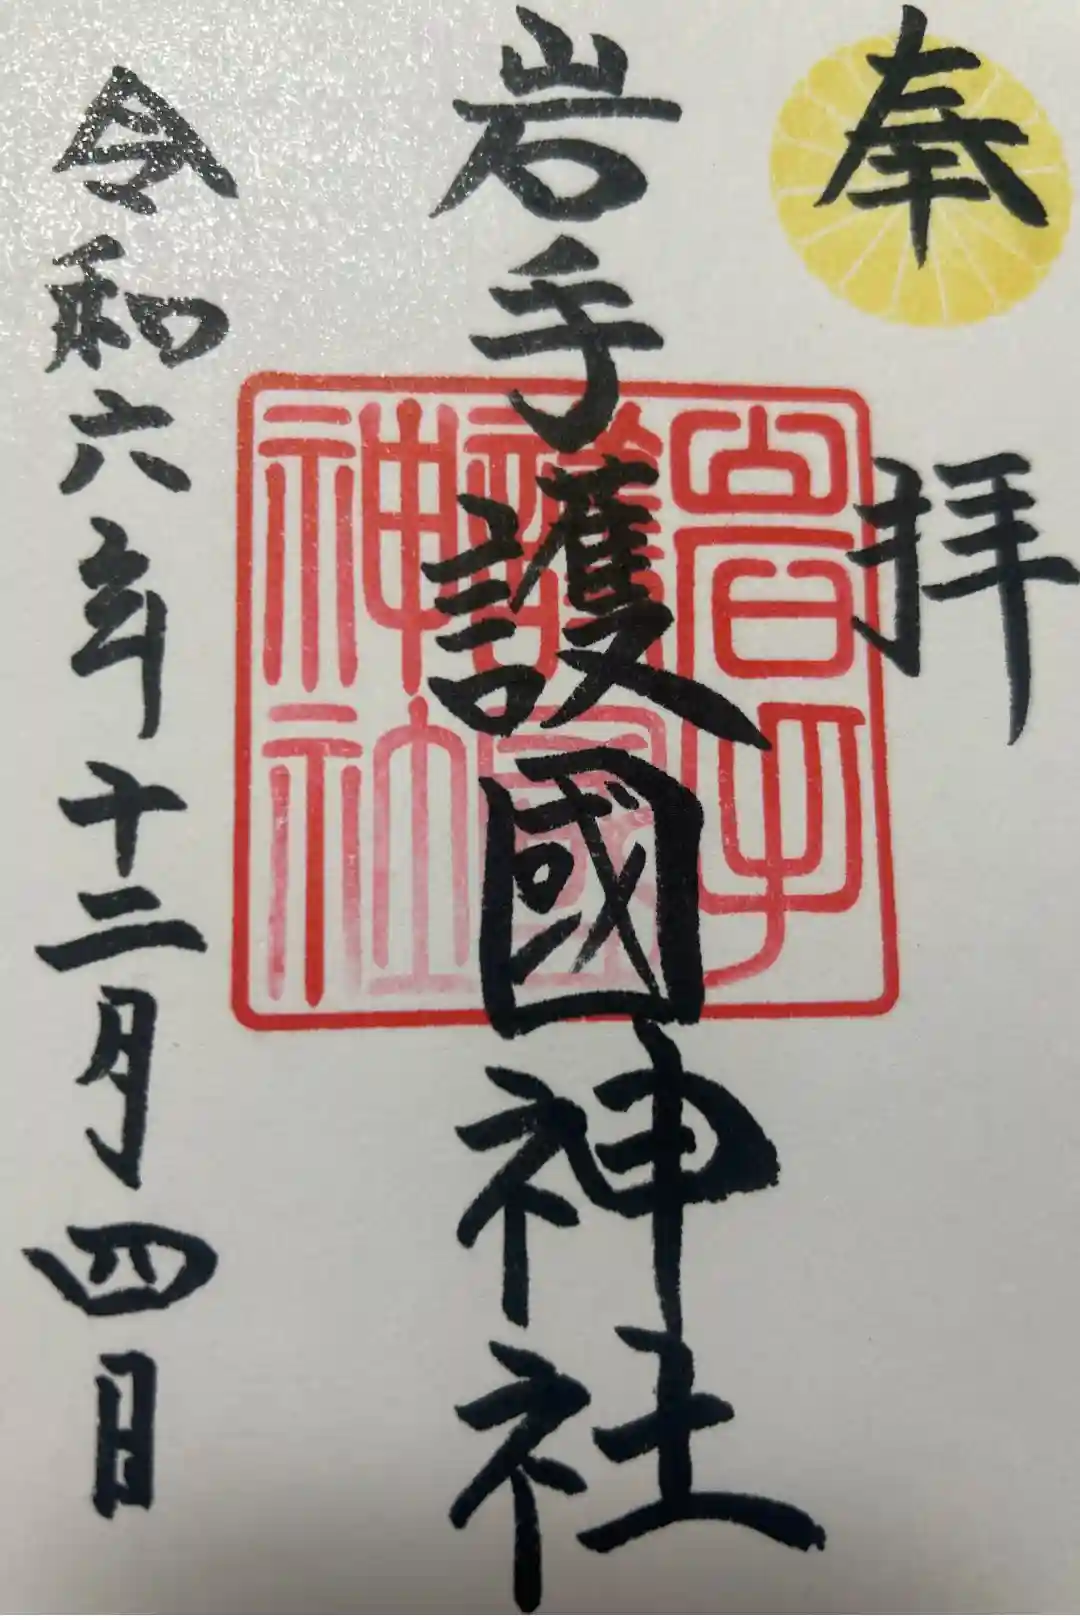 奉拝
岩手護國神社
岩手護國神社
令和六年十二月四日